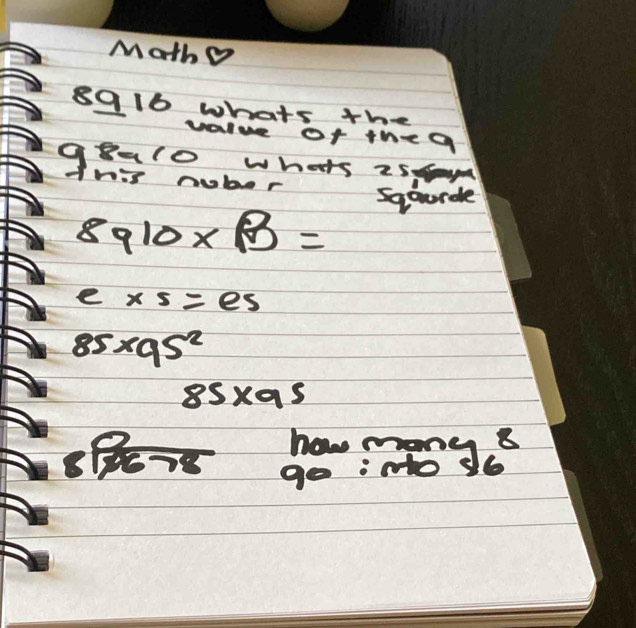 Math ♡
8916 whats the
value of the 9
98910 whats 25
this nuber sqaurde
8910 × B =
e × s = es
85×95²
85×95
how many 8
8 78
go into 56